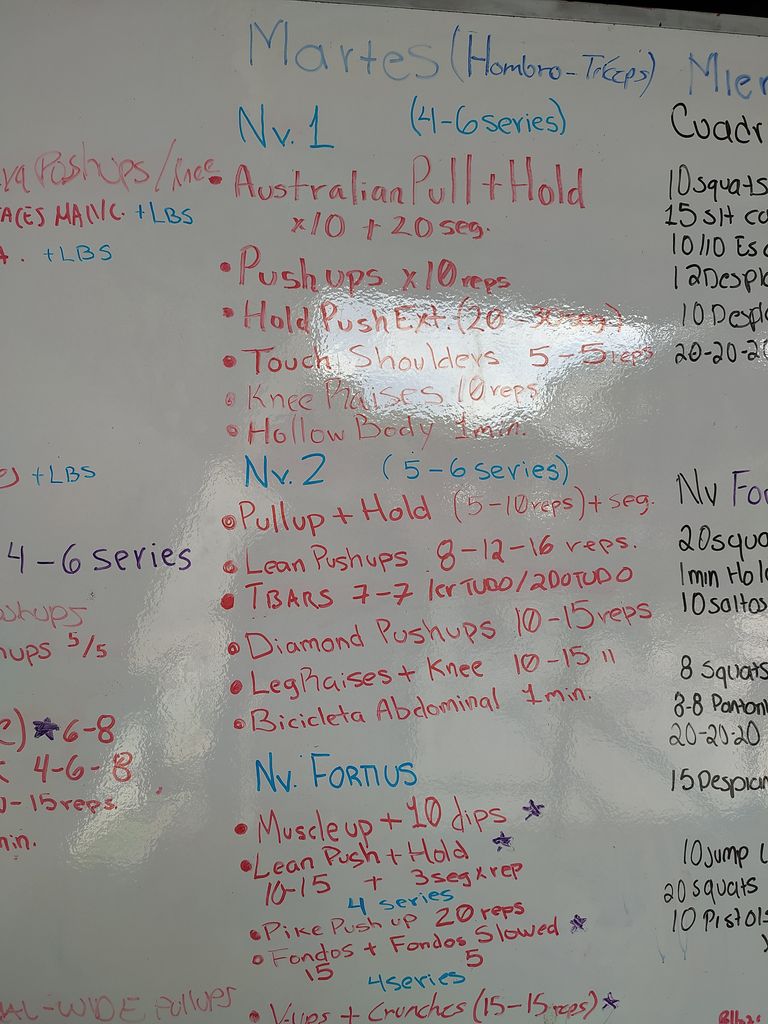 Martes (Hombro - Tríceps)
Nv. 1 (4-6 series)
• Australian Pull + Hold
x10 + 20 seg.
• Push ups x10 reps
• Hold Push Ext. (20-30seg.)
• Touch Shoulders 5-5 reps
• Knee Raises 10 reps
• Hollow Body 1 min.
Nv. 2 (5-6 series)
• Pullup + Hold (5-10 reps) + seg.
• Lean Pushups 8-12-16 reps.
• TBARS 7-7 1er TUDO/2DO TUDO
• Diamond Pushups 10-15 reps
• Leg Raises + Knee 10-15 "
• Bicicleta Abdominal 1 min.
Nv. FORTIUS
• Muscle up + 10 dips ★
• Lean Push + Hold ★
10-15 + 3seg x rep
4 series
• Pike Push up 20 reps
• Fondos + Fondos Slowed ★
15 5
4 series
• V-ups + Crunches (15-15 reps) ★
Pushups / Knee
MANC. +LBS
+LBS
+LBS
4-6 series
ups 5/5
★ 6-8
4-6-8
15 reps.
min.
-WIDE Pullups
Mier
Cuadr
10 squats
15 sit
10/10 Es
12 Despla
10 Despl
20-20-20
Nv For
20 squa
1min Hold
10 saltos
8 squats
8-8
20-20-20
15 Desplan
10 Jump
20 squats
10 Pistols